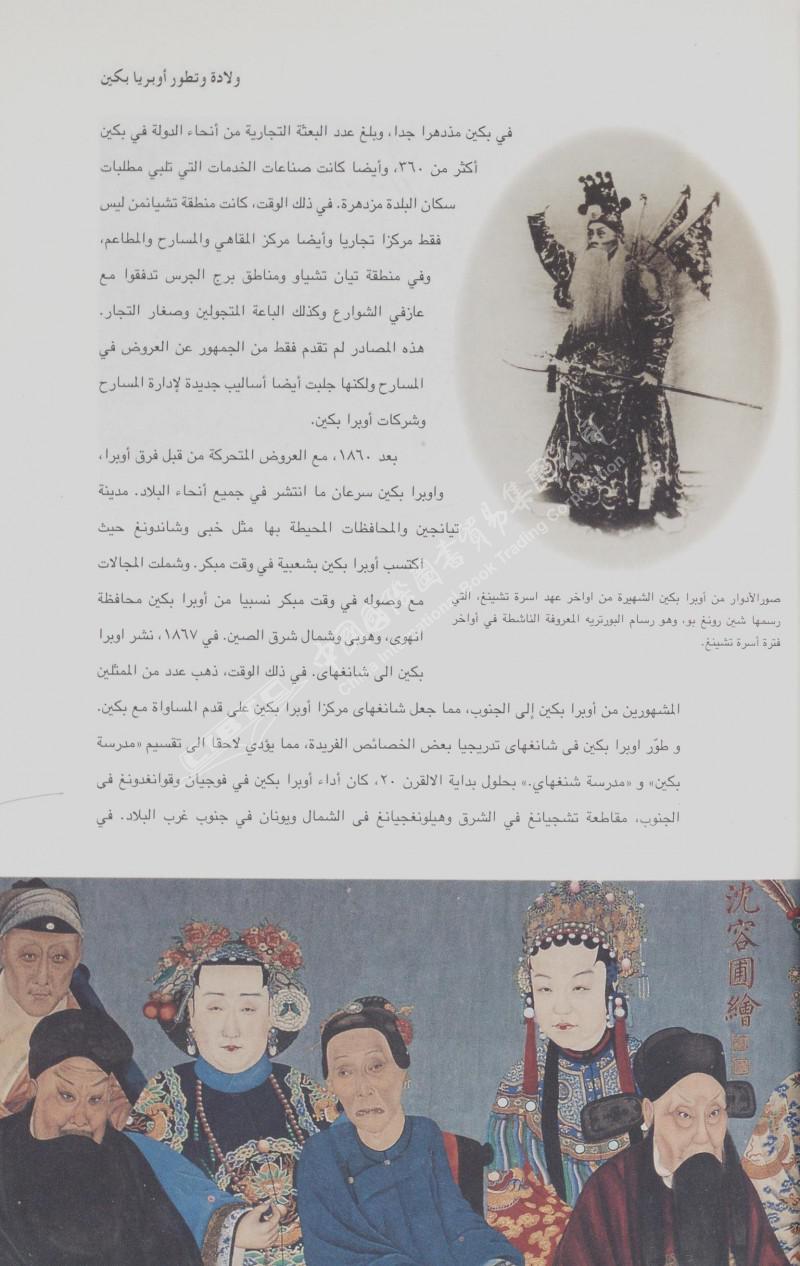 ولادة وتطور أوبريا بكين
في بكين مذدهرا جدا، وبلغ عدد البعثة التجارية من أنحاء الدولة في بكين
أكثر من ٣٦٠، وأيضا كانت صناعات الخدمات التي تلبي مطلبات
سكان البلدة مزدهرة. في ذلك الوقت، كانت منطقة تشيانمن ليس
فقط مركزا تجاريا وأيضا مركز المقاهي والمسارح والمطاعم،
وفي منطقة تيان تشياو ومناطق برج الجرس تدفقوا مع
عازفي الشوارع وكذلك الباعة المتجولين وصغار التجار.
هذه المصادر لم تقدم فقط من الجمهور عن العروض في
المسارح ولكنها جلبت أيضا أساليب جديدة لإدارة المسارح
وشركات أوبرا بكين.
بعد ١٨٦٠، مع العروض المتحركة من قبل فرق أوبرا،
واوبرا بكين سرعان ما انتشر في جميع أنحاء البلاد. مدينة
تيانجين والمحافظات المحيطة بها مثل خبى وشاندونغ حيث
اكتسب أوبرا بكين بشعبية في وقت مبكر. وشملت المجالات
مع وصوله في وقت مبكر نسبيا من أوبرا بكين محافظة
انهوى، وهوبى وشمال شرق الصين. في ١٨٦٧، نشر اوبرا
بكين الى شانغهاى. في ذلك الوقت، ذهب عدد من الممثلين
المشهورين من أوبرا بكين إلى الجنوب، مما جعل شانغهاى مركزا أوبرا بكين على قدم المساواة مع بكين.
و طوّر اوبرا بكين فى شانغهاى تدريجيا بعض الخصائص الفريدة، مما يؤدي لاحقا الى تقسيم «مدرسة
بكين» و «مدرسة شنغهاي.» بحلول بداية الالقرن ٢٠، كان أداء أوبرا بكين في فوجيان وقوانغدونغ فى
الجنوب، مقاطعة تشجيانغ في الشرق وهيلونغجيانغ فى الشمال ويونان في جنوب غرب البلاد. في
صورالأدوار من أوبرا بكين الشهيرة من اواخر عهد اسرة تشينغ، التي
رسمها شين رونغ بو، وهو رسام البورتريه المعروفة الناشطة في أواخر
فترة أسرة تشينغ.
中国国际图书贸易集团公司
China International Book Trading Corporation
沈容圃繪